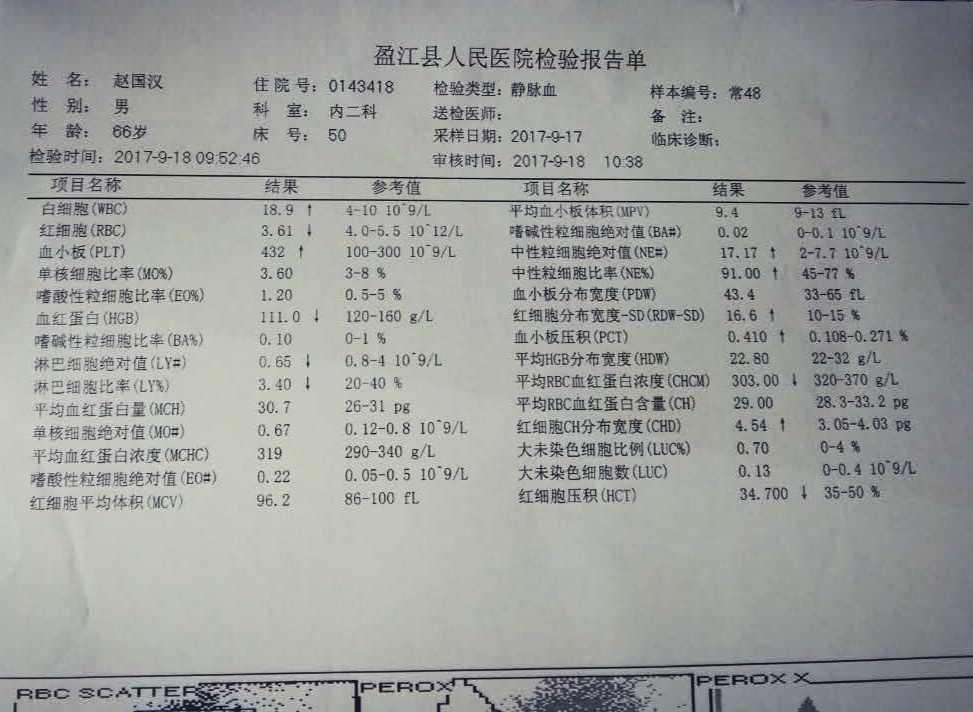 盈江县人民医院检验报告单
姓 名： 赵国汉 住院号：0143418 检验类型：静脉血 样本编号：常48
性 别： 男 科 室： 内二科 送检医师： 备 注：
年 龄： 66岁 床 号： 50 采样日期：2017-9-17 临床诊断：
检验时间：2017-9-18 09:52:46 审核时间：2017-9-18 10:38
项目名称 结果 参考值 项目名称 结果 参考值
白细胞(WBC) 18.9 ↑ 4-10 10^9/L 平均血小板体积(MPV) 9.4 9-13 fL
红细胞(RBC) 3.61 ↓ 4.0-5.5 10^12/L 嗜碱性粒细胞绝对值(BA#) 0.02 0-0.1 10^9/L
血小板(PLT) 432 ↑ 100-300 10^9/L 中性粒细胞绝对值(NE#) 17.17 ↑ 2-7.7 10^9/L
单核细胞比率(MO%) 3.60 3-8 % 中性粒细胞比率(NE%) 91.00 ↑ 45-77 %
嗜酸性粒细胞比率(EO%) 1.20 0.5-5 % 血小板分布宽度(PDW) 43.4 33-65 fL
血红蛋白(HGB) 111.0 ↓ 120-160 g/L 红细胞分布宽度-SD(RDW-SD) 16.6 ↑ 10-15 %
嗜碱性粒细胞比率(BA%) 0.10 0-1 % 血小板压积(PCT) 0.410 ↑ 0.108-0.271 %
淋巴细胞绝对值(LY#) 0.65 ↓ 0.8-4 10^9/L 平均HGB分布宽度(HDW) 22.80 22-32 g/L
淋巴细胞比率(LY%) 3.40 ↓ 20-40 % 平均RBC血红蛋白浓度(CHCM) 303.00 ↓ 320-370 g/L
平均血红蛋白量(MCH) 30.7 26-31 pg 平均RBC血红蛋白含量(CH) 29.00 28.3-33.2 pg
单核细胞绝对值(MO#) 0.67 0.12-0.8 10^9/L 红细胞CH分布宽度(CHD) 4.54 ↑ 3.05-4.03 pg
平均血红蛋白浓度(MCHC) 319 290-340 g/L 大未染色细胞比例(LUC%) 0.70 0-4 %
嗜酸性粒细胞绝对值(EO#) 0.22 0.05-0.5 10^9/L 大未染色细胞数(LUC) 0.13 0-0.4 10^9/L
红细胞平均体积(MCV) 96.2 86-100 fL 红细胞压积(HCT) 34.700 ↓ 35-50 %
RBC SCATTER PEROX PEROX X